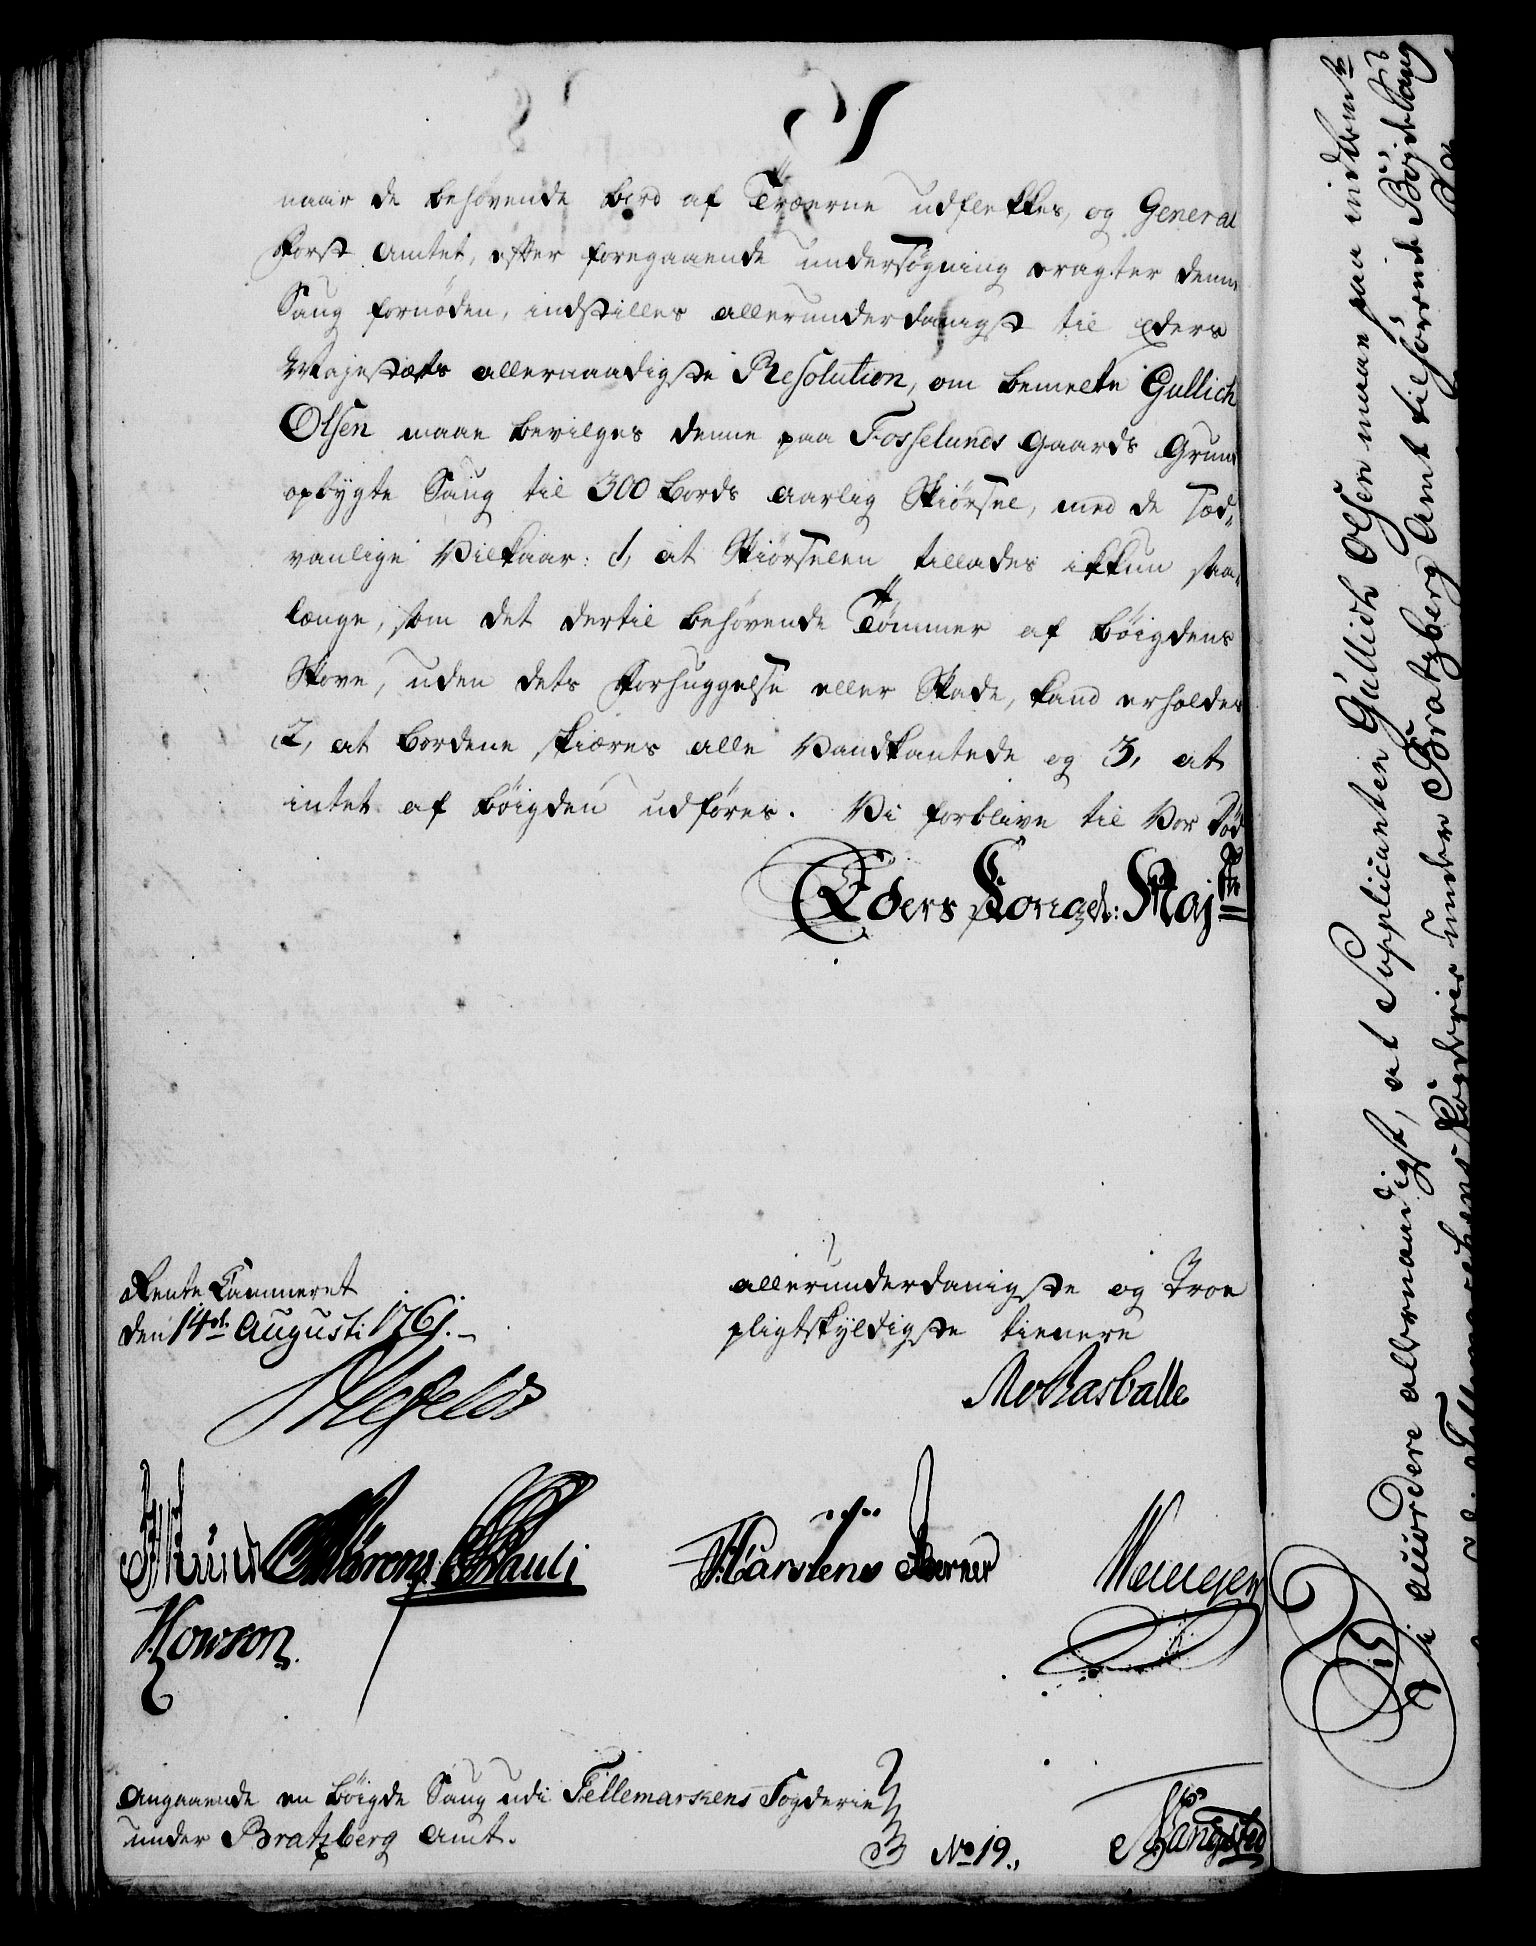 naar de behøvende bord af Træerne udflekkes, og General
Forst Amtet, efter foregaaende undersøgning eragter denne
Saug fornøden, indstilles allerunderdanigst til Eders
Majestæts allernaadigste Resolution, om bemelte Gullich
Olsen maae bevilges denne paa Fosselunds Gaards Grund
opbygte Saug til 300 bords aarlig Skiørsel, med de sæd,
vanlige Vilkaar: 1, at Skiørselen tillades ikkun saa,
længe, som det dertil behøvende Tømmer af bøigdens
Skove, uden dets Forhuggelse eller Skade, kand erholdes
2, at bordene skiæres alle Vandkantede og 3, at
intet af bøigden udføres. Vi forblive til Vor Død
Eders Kongel: Maj:ts
Rente Cammeret
den 14de Augusti 1761.
allerunderdanigste og Troe
pligtskyldigste tienere
Ahlefeldt
Mo Rasballe
Pauli
Karstens
Berner
Wenger
Howson.
Angaaende en bøigde Saug udi Tellemarkens Fogderie
under Bratzberg Amt.
No 19.
Vi anordere allernaadigst, at Supplicanten Gullich Olsen maae paa indbem:te
Tellemarkens Fogderie under Bratzberg Amt tilhørende Bøjde Saug